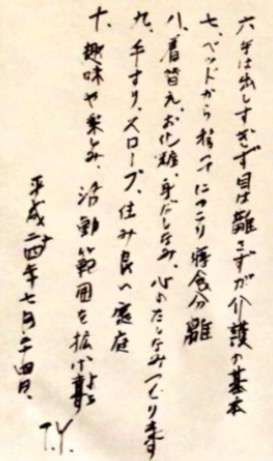 六、手は出しすぎず目は離さずが介護の基本
七、ベッドから椅子にニッコリ寝食分離
八、着替え、お化粧、身だしなみ、心のたしなみつくります
九、手すり、スロープ、住み良い家庭
十、趣味や楽しみ、活動範囲を拡げ
平成二十四年七月二十四日、
T.Y.